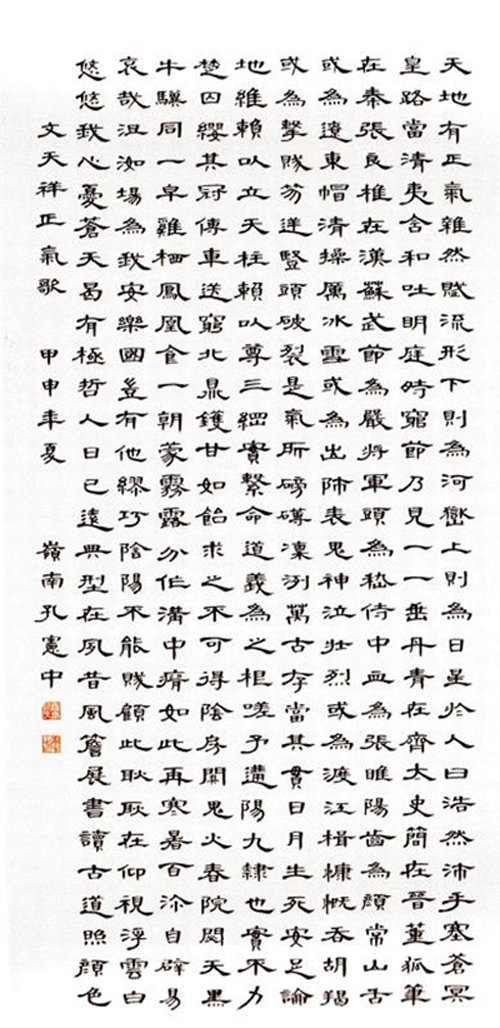 天地有正氣雜然賦流形下則為河嶽上則為日星於人曰浩然沛乎塞蒼冥
皇路當清夷含和吐明庭時窮節乃見一一垂丹青在齊太史簡在晉董狐筆
在秦張良椎在漢蘇武節為嚴將軍頭為嵇侍中血為張睢陽齒為顏常山舌
或為遼東帽清操厲冰雪或為出師表鬼神泣壯烈或為渡江楫慷慨吞胡羯
或為擊賊笏逆豎頭破裂是氣所磅礴凜冽萬古存當其貫日月生死安足論
地維賴以立天柱賴以尊三綱實繫命道義為之根嗟予遭陽九隸也實不力
楚囚纓其冠傳車送窮北鼎鑊甘如飴求之不可得陰房闃鬼火春院閟天黑
牛驥同一皁雞栖鳳凰食一朝蒙霧露分作溝中瘠如此再寒暑百沴自辟易
哀哉沮洳場為我安樂國豈有他繆巧陰陽不能賊顧此耿耿在仰視浮雲白
悠悠我心憂蒼天曷有極哲人日已遠典型在夙昔風簷展書讀古道照顏色
文天祥正氣歌 甲申年夏 嶺南孔憲中